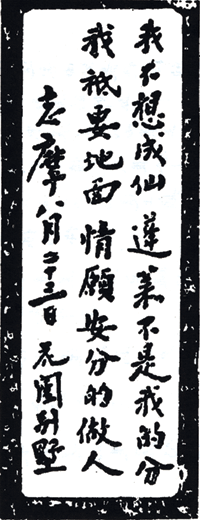 我不想成仙 蓬莱不是我的分
我祗要地面 情願安分的做人
志摩八月二十三日 花園别墅